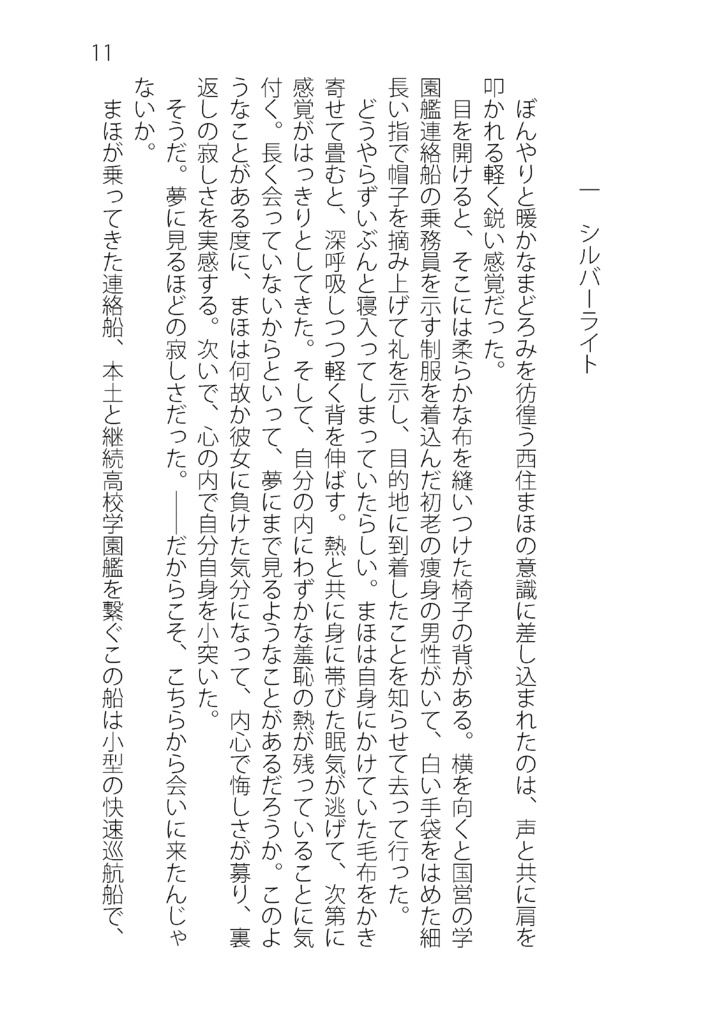 11
一　シルバーライト
ぼんやりと暖かなまどろみを彷徨う西住まほの意識に差し込まれたのは、声と共に肩を
叩かれる軽く鋭い感覚だった。
目を開けると、そこには柔らかな布を縫いつけた椅子の背がある。横を向くと国営の学
園艦連絡船の乗務員を示す制服を着込んだ初老の痩身の男性がいて、白い手袋をはめた細
長い指で帽子を摘み上げて礼を示し、目的地に到着したことを知らせて去って行った。
どうやらずいぶんと寝入ってしまっていたらしい。まほは自身にかけていた毛布をかき
寄せて畳むと、深呼吸しつつ軽く背を伸ばす。熱と共に身に帯びた眠気が逃げて、次第に
感覚がはっきりとしてきた。そして、自分の内にわずかな羞恥の熱が残っていることに気
付く。長く会っていないからといって、夢にまで見るようなことがあるだろうか。このよ
うなことがある度に、まほは何故か彼女に負けた気分になって、内心で悔しさが募り、裏
返しの寂しさを実感する。次いで、心の内で自分自身を小突いた。
そうだ。夢に見るほどの寂しさだった。――だからこそ、こちらから会いに来たんじゃ
ないか。
まほが乗ってきた連絡船、本土と継続高校学園艦を繋ぐこの船は小型の快速巡航船で、